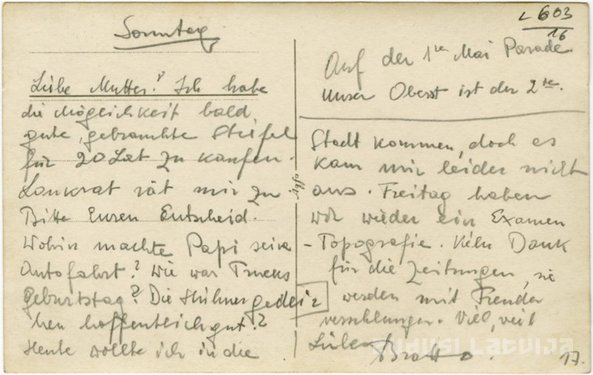 L 603
16
Sonntag
Liebe Mutter! Ich habe
die Möglichkeit bald,
gute, gebrauchte Stiefel
für 20 Lat zu kaufen.
rät mir zu
Bitte Euren Entscheid.
Wohin machte Papi seine
Autofahrt? Wie war
Geburtstag? Die Hühner gedeih
hen hoffentlich gut?
Heute wollte ich in die
Auf der 1ten Mai Parade.
Unser Oberst ist der 2te.
Stadt kommen, doch es
kam mir leider nicht
aus. Freitag haben
wir wieder ein Examen
- Topografie. Vielen Dank
für die Zeitungen, sie
werden mit Freuden
verschlungen. Viel, viel
ZUDUSI LATVIJA
17.